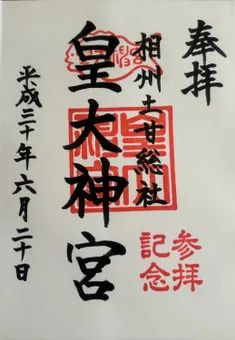 奉拝
相州土甘総社
皇大神宮
平成三十年六月二十日
参拝
記念